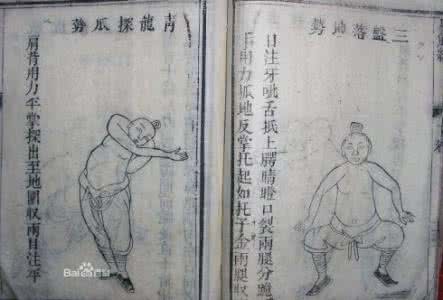 三盤落地勢
目注牙呲舌抵上腭睛瞪口裂兩腿分跪
手用力抓地反掌托起如托千金兩腿収
青龍探爪勢
肩背用力平掌探出至地圍収兩目注平
Bai百科